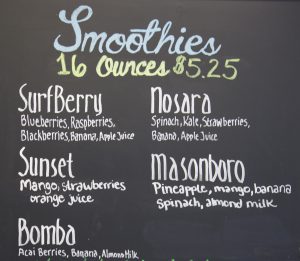 Smoothies
16 Ounces $5.25
SurfBerry
Blueberries, Raspberries,
Blackberries, Banana, Apple Juice
Sunset
Mango, strawberries
orange juice
Bomba
Acai Berries, Banana, Almond Milk
Nosara
Spinach, Kale, Strawberries,
Banana, Apple Juice
Masonboro
Pineapple, mango, banana
Spinach, almond milk